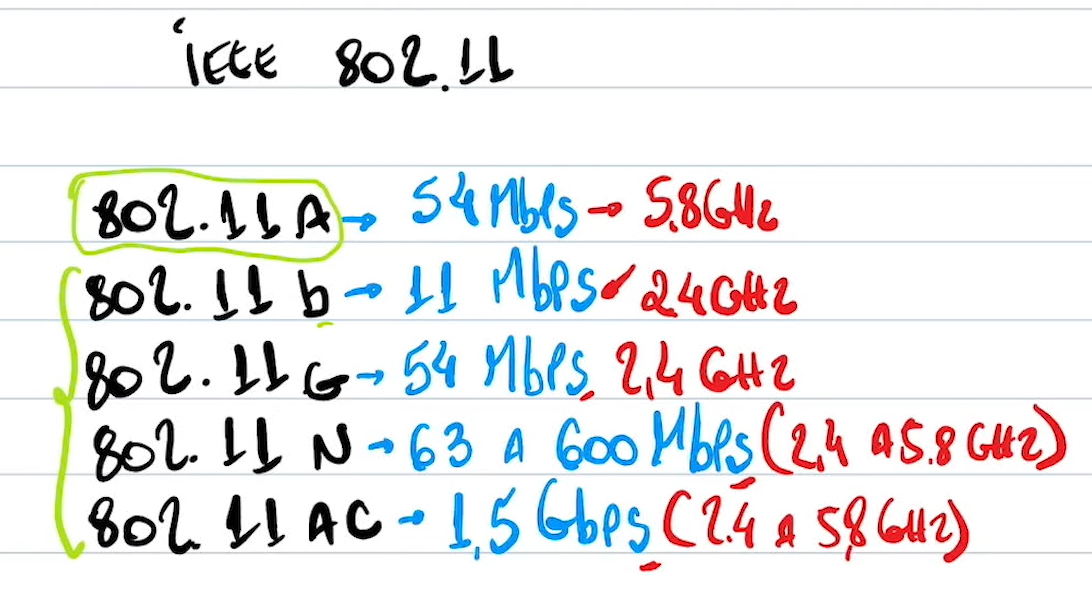 IEEE 802.11
802.11 A → 54 Mbps → 5.8GHz
802.11 b → 11 Mbps 2.4GHz
802.11 G → 54 Mbps 2,4 GHz
802.11 N → 63 A 600 Mbps (2,4 A 5.8 GHz)
802.11 AC → 1,5 Gbps (2.4 A 5,8 GHz)